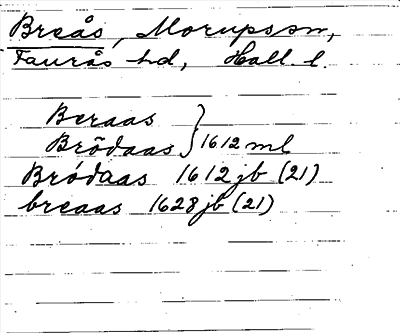 Breås, Morups sn,
Faurås hd, Hall. l.
Beraas
Brödaas } 1612 ml
Bródaas 1612 jb (21)
breaas 1628 jb (21)